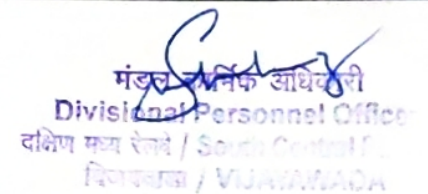 मंडल कार्मिक अधिकारी
Divisional Personnel Office
दक्षिण मध्य रेलवे / South Central
विजयवाडा / VIJAYAWADA